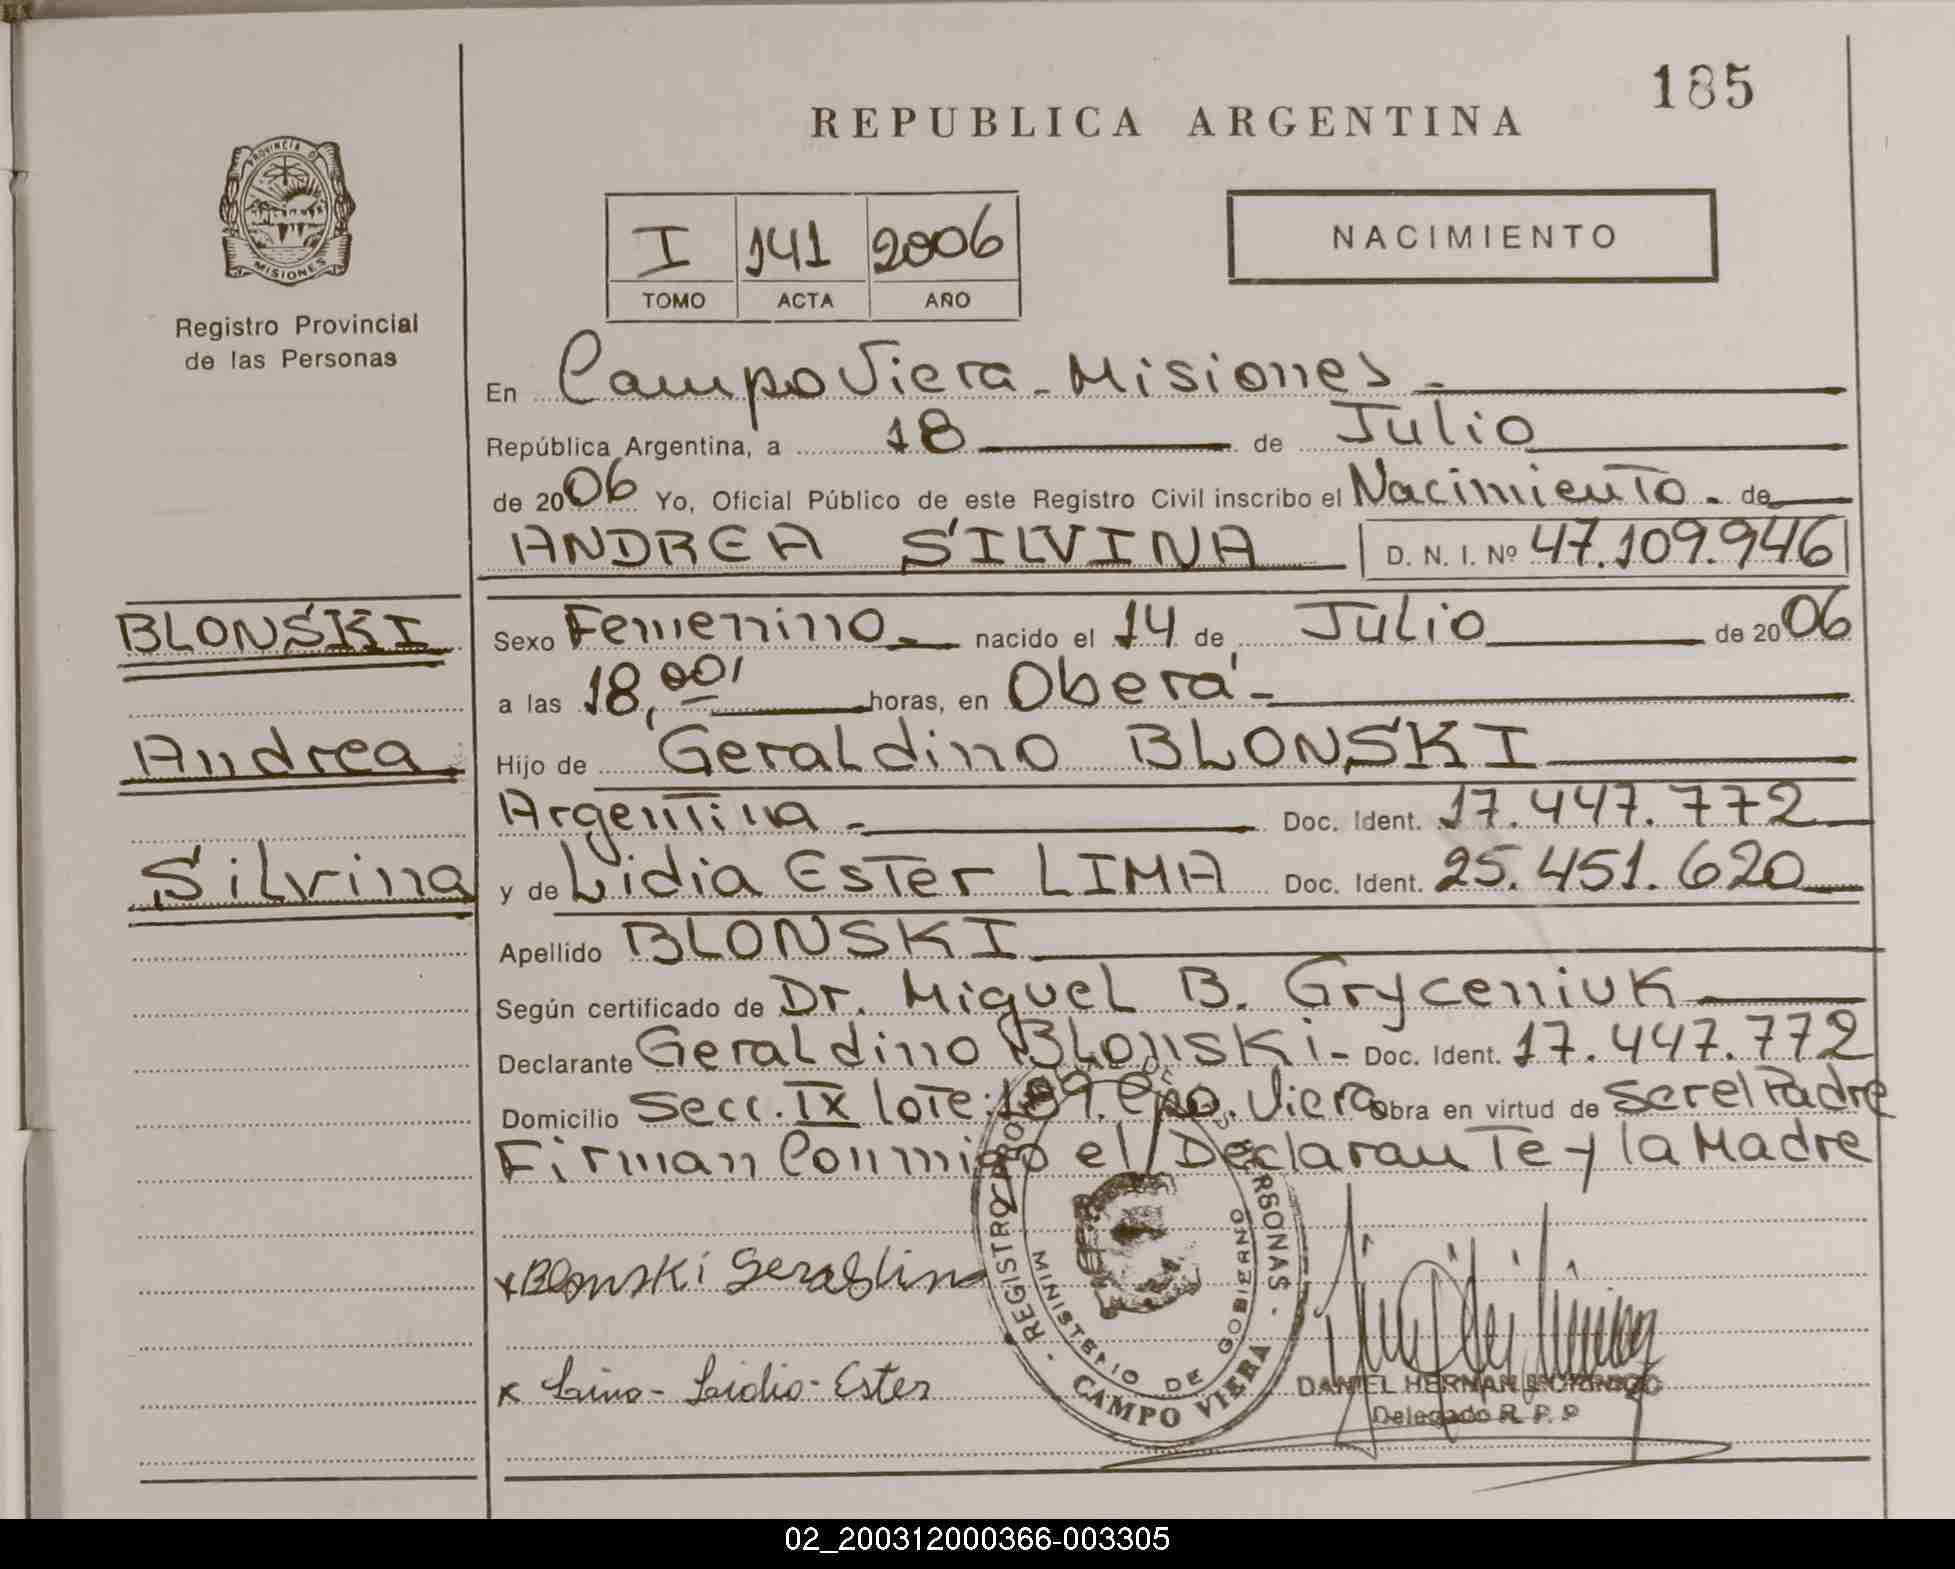 185
REPUBLICA ARGENTINA
PROVINCIA D
MISIONES
Registro Provincial
de las Personas
I 141 2006
TOMO ACTA AÑO
NACIMIENTO
En Campo Viera - Misiones -
República Argentina, a 18 de Julio
de 2006 Yo, Oficial Público de este Registro Civil inscribo el Nacimiento - de
ANDREA SILVINA D. N. I. Nº 47.109.946
BLONSKI
Andrea
Silvina
Sexo Femenino - nacido el 14 de Julio de 2006
a las 18,00' horas, en Oberá -
Hijo de Geraldino BLONSKI
Argentina - Doc. Ident. 17.447.772
y de Lidia Ester LIMA Doc. Ident. 25.451.620
Apellido BLONSKI
Según certificado de Dr. Miguel B. Gryceniuk
Declarante Geraldino Blonski - Doc. Ident. 17.447.772
Domicilio Secc. IX lote: 109. Cpo. Viera obra en virtud de ser el Padre
Firman Conmigo el Declarante y la Madre
x Blonski Geraldino
x Lima - Lidia - Ester
MINISTERIO DE GOBIERNO
CAMPO VIERA
DANIEL HERNAN
Delegado R. P. P
02_200312000366-003305